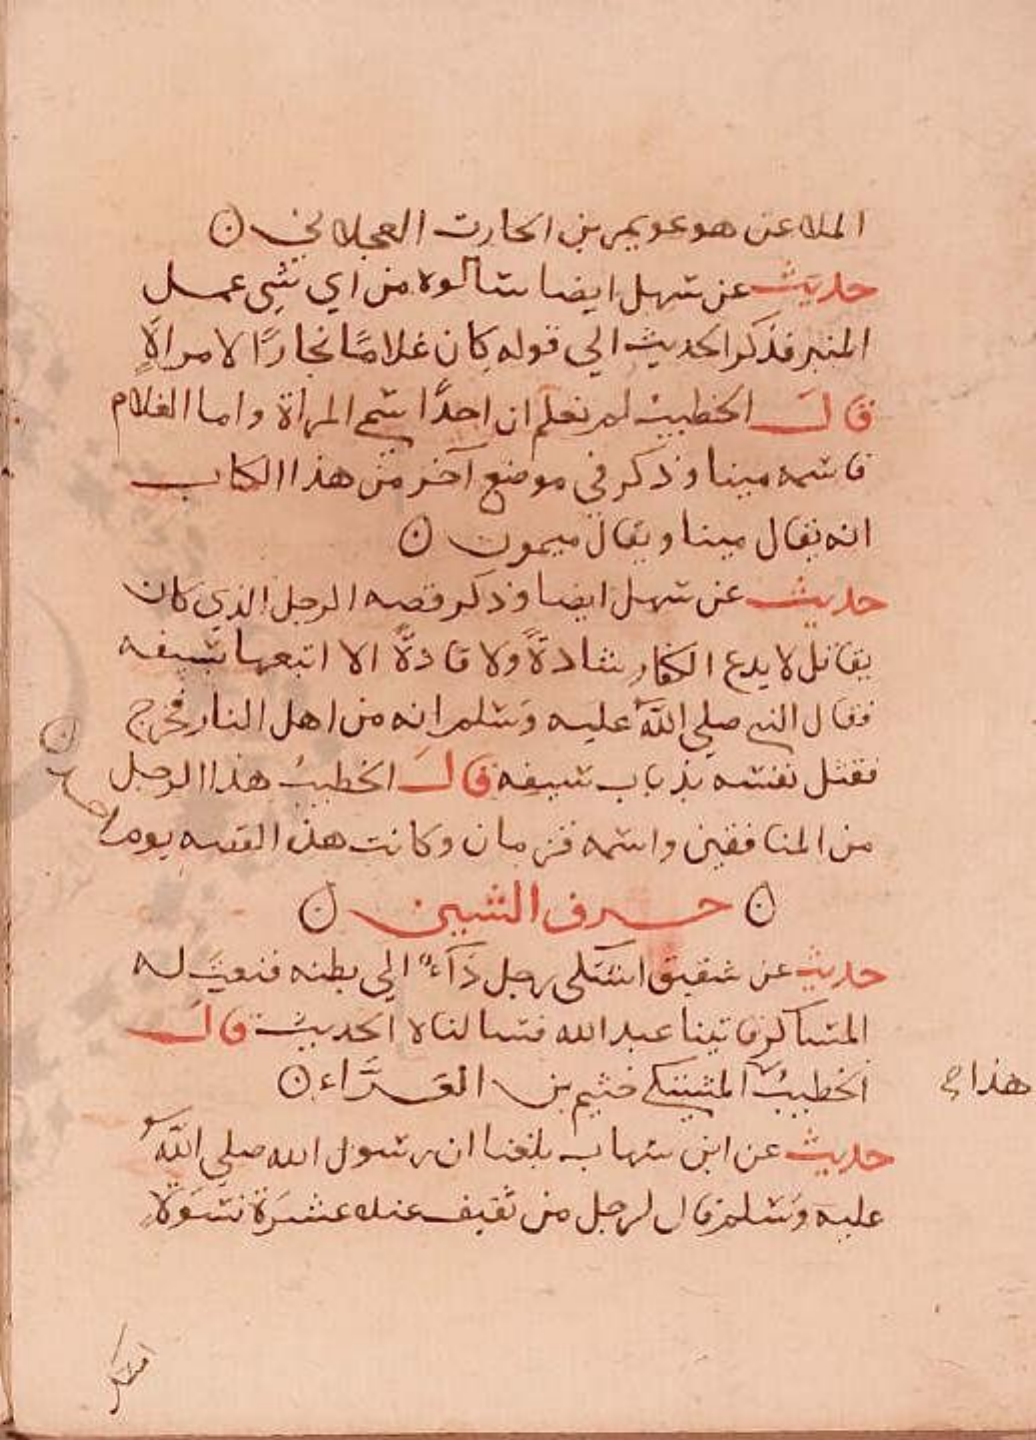 الملاعن هو عويمر بن الحارث العجلاني ن
حديث عن سهل ايضا سالوه من اي شي عمل
المنبر فذكر الحديث الي قوله كان غلامًا نجارًا لامراةٍ
قالَ الخطيبُ لم نعلم ان احدًا سمي المراة واما الغلام
فاسمه مينا وذكر في موضع آخر من هذا الكتاب
انه يقال مينا ويقال ميمون ن
حديث عن سهل ايضا وذكر قصه الرجل الذي كان
يقاتل لا يدع الكفار شاذةً ولا فاذةً الا اتبعها بسيفه
فقال النبي صلي اللهُ عليه وسلم انه من اهل النار فخرج
فقتل نفسه بذباب سيفه قالَ الخطيبُ هذا الرجل
من المنافقين واسمه قزمان وكانت هذه القصه يوم احد ن
ن حرف الشين ن
حديث عن شقيق اشتكي رجل دَآءً الي بطنه فنعت له
المسكر فاتينا عبد الله فسالناه الحديث قالَ
الخطيبُ المشتكي خثيم بن العَدَّاء ن
هذا هو
حديث عن ابن شهاب بلغنا ان رسول الله صلي اللهُ
عليه وسلم قال لرجل من ثقيف عنده عشرة نسوةٍ
امسك